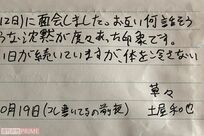 12日)に面会しました。お互い何当そう
な沈黙が度々あった印象です。
日が続いていますが体をこわさない
草々
0月19日(コレ書いてるの前夜)
土屋和也
週刊女性PRIME